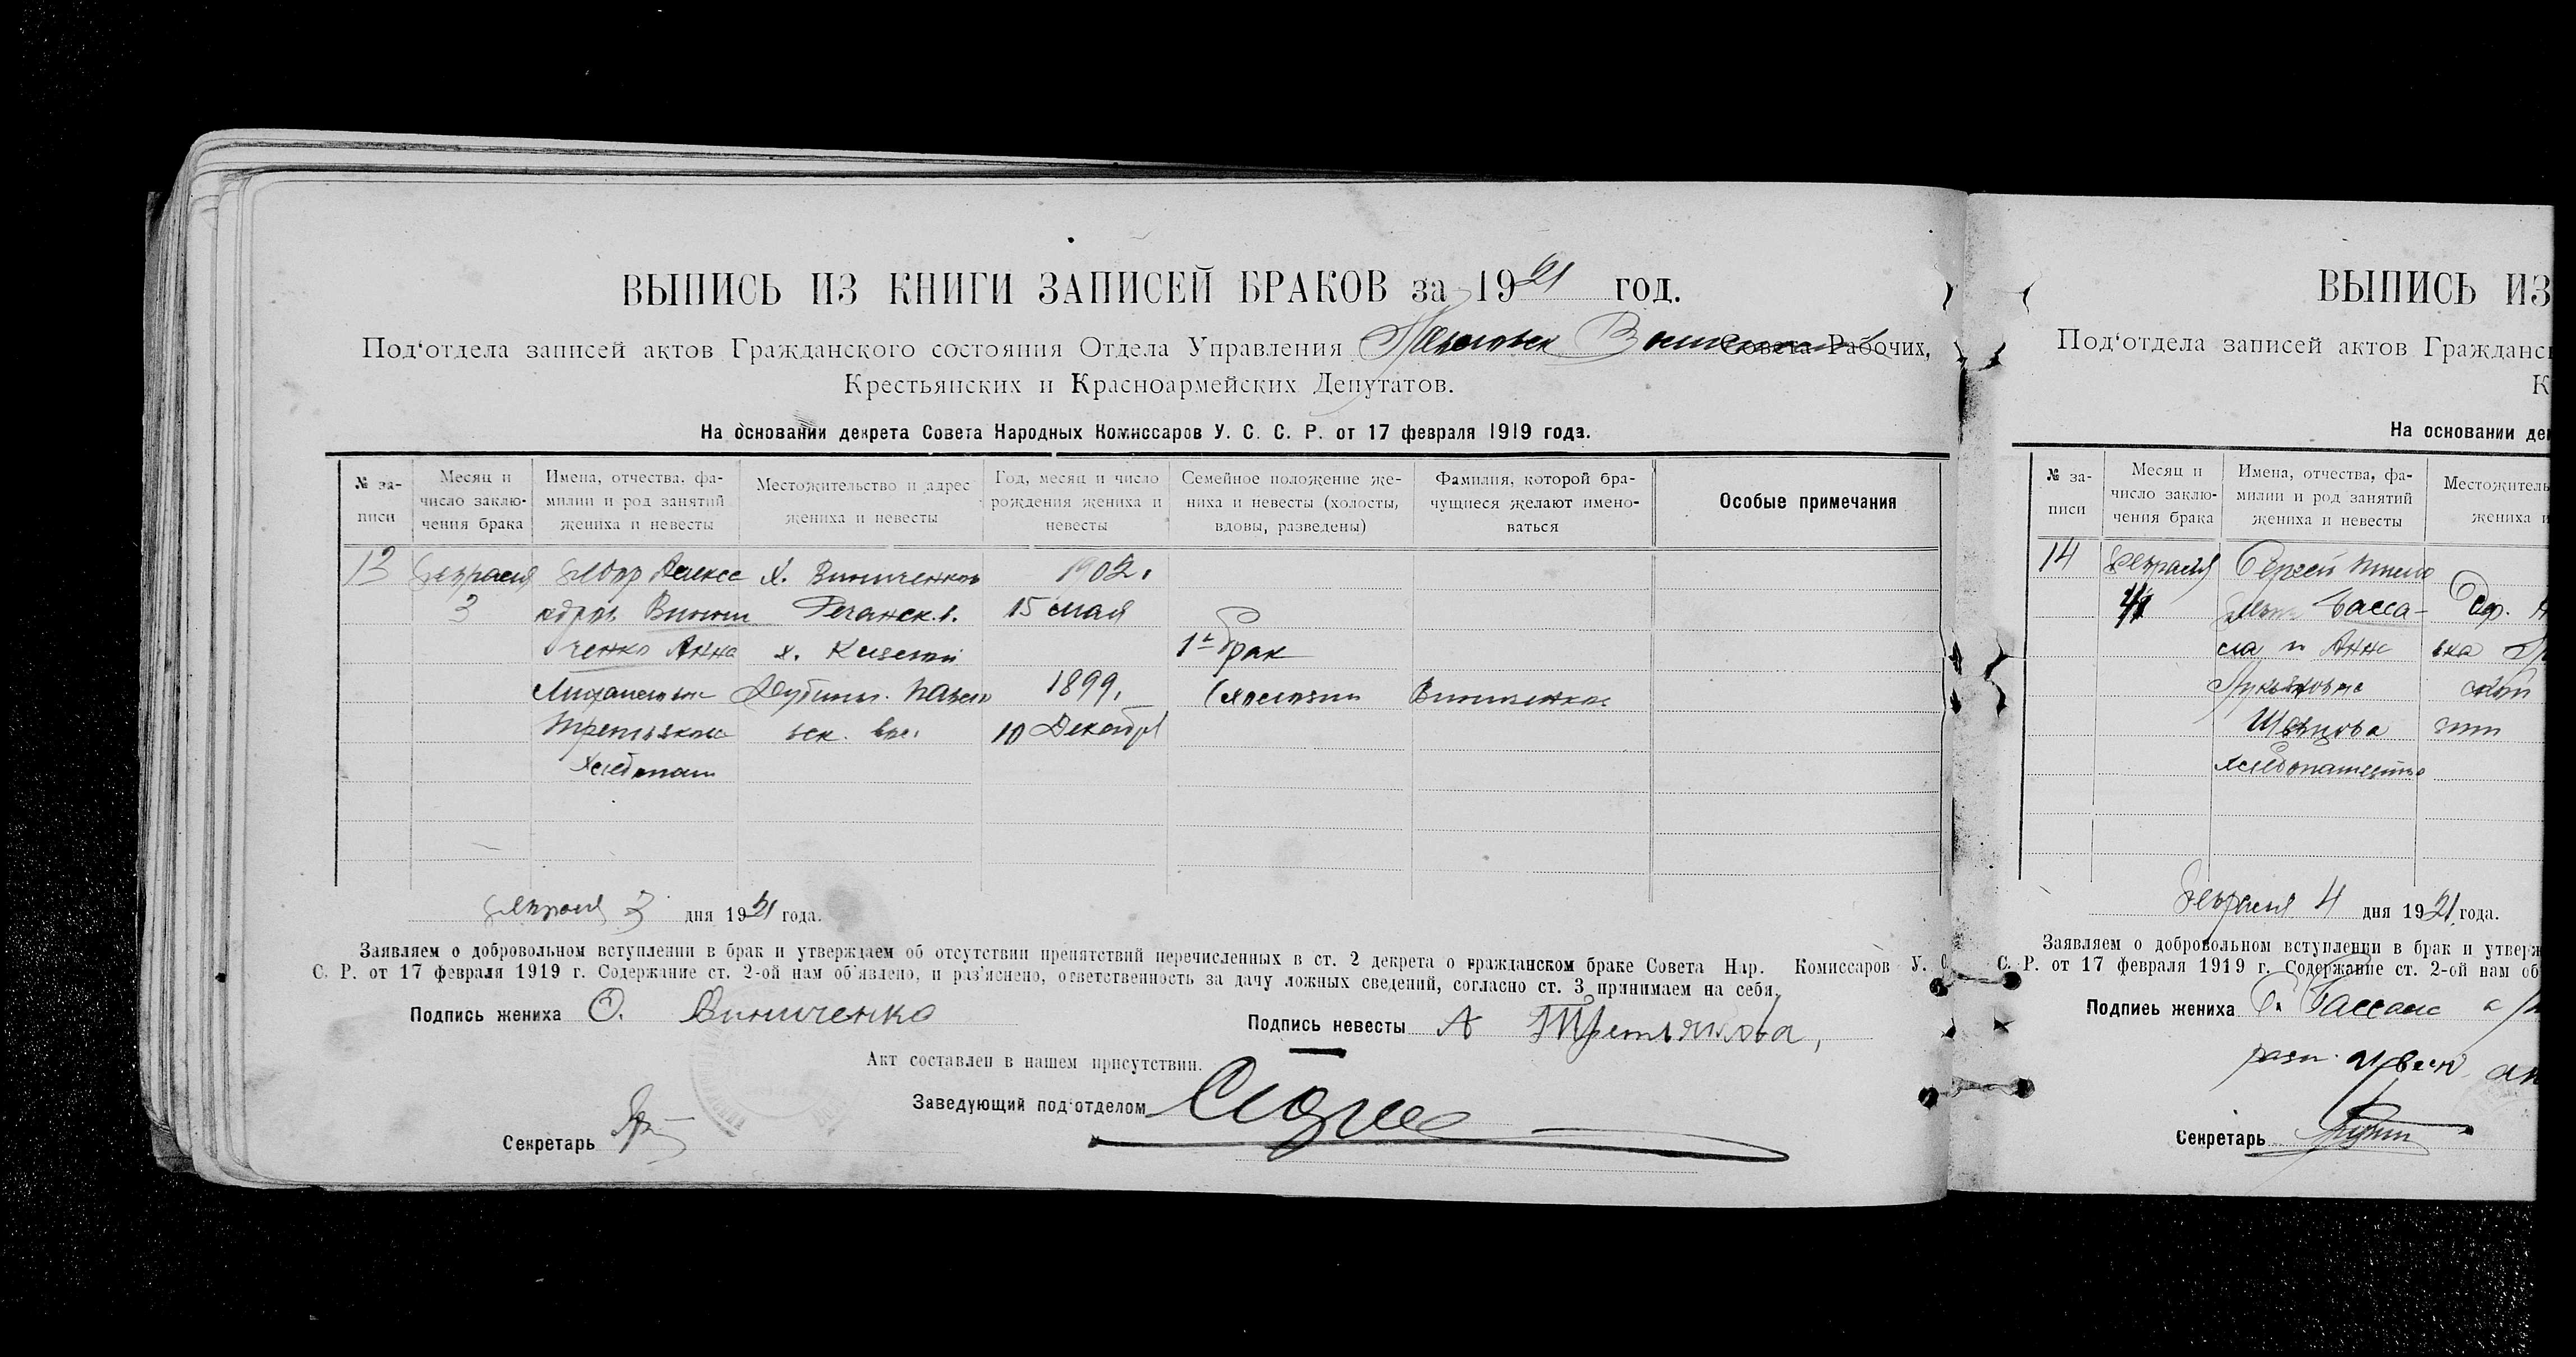 ВЫПИСЬ ИЗ КНИГИ ЗАПИСЕЙ БРАКОВ за 1921 год.
Под'отдела записей актов Гражданского состояния Отдела Управления Совета Рабочих,
Крестьянских и Красноармейских Депутатов.
На основании декрета Совета Народных Комиссаров У. С. С. Р. от 17 февраля 1919 года.
№ за-
писи
Месяц и
число заклю-
чения брака
Имена, отчества, фа-
милии и род занятий
жениха и невесты
Местожительство и адрес
жениха и невесты
Год, месяц и число
рождения жениха и
невесты
Семейное положение же-
ниха и невесты (холосты,
вдовы, разведены)
Фамилия, которой бра-
чущиеся желают имено-
ваться
Особые примечания
13 февраля х. Виниченков 1902.
3 15 мая
ченко Анна х. 1й брак
1899, Виниченко
Третьякова 10 Декабря
Хлебопаш
февраля 3 дня 1921 года.
Заявляем о добровольном вступлении в брак и утверждаем об отсутствии препятствий перечисленных в ст. 2 декрета о гражданском браке Совета Нар. Комиссаров У. С
С. Р. от 17 февраля 1919 г. Содержание ст. 2-ой нам об'явлено, и раз'яснено, ответственность за дачу ложных сведений, согласно ст. 3 принимаем на себя.
Подпись жениха О. Виниченко
Подпись невесты А Третьякова,
Акт составлен в нашем присутствии.
Заведующий под'отделом
Секретарь
ВЫПИСЬ ИЗ
Под'отдела записей актов Гражданс
К
На основании де
№ за-
писи
Месяц и
число заклю-
чения брака
Имена, отчества, фа-
милии и род занятий
жениха и невесты
Местожитель
жениха и
14 февраля Сергей
4 Басса-
ла и Анна
Лукьяновна
Швецова
хлебопашество
февраля 4 дня 1921 года.
Заявляем о добровольном вступлении в брак и утверж
С. Р. от 17 февраля 1919 г. Содержание ст. 2-ой нам об
Подпись жениха
Секретарь